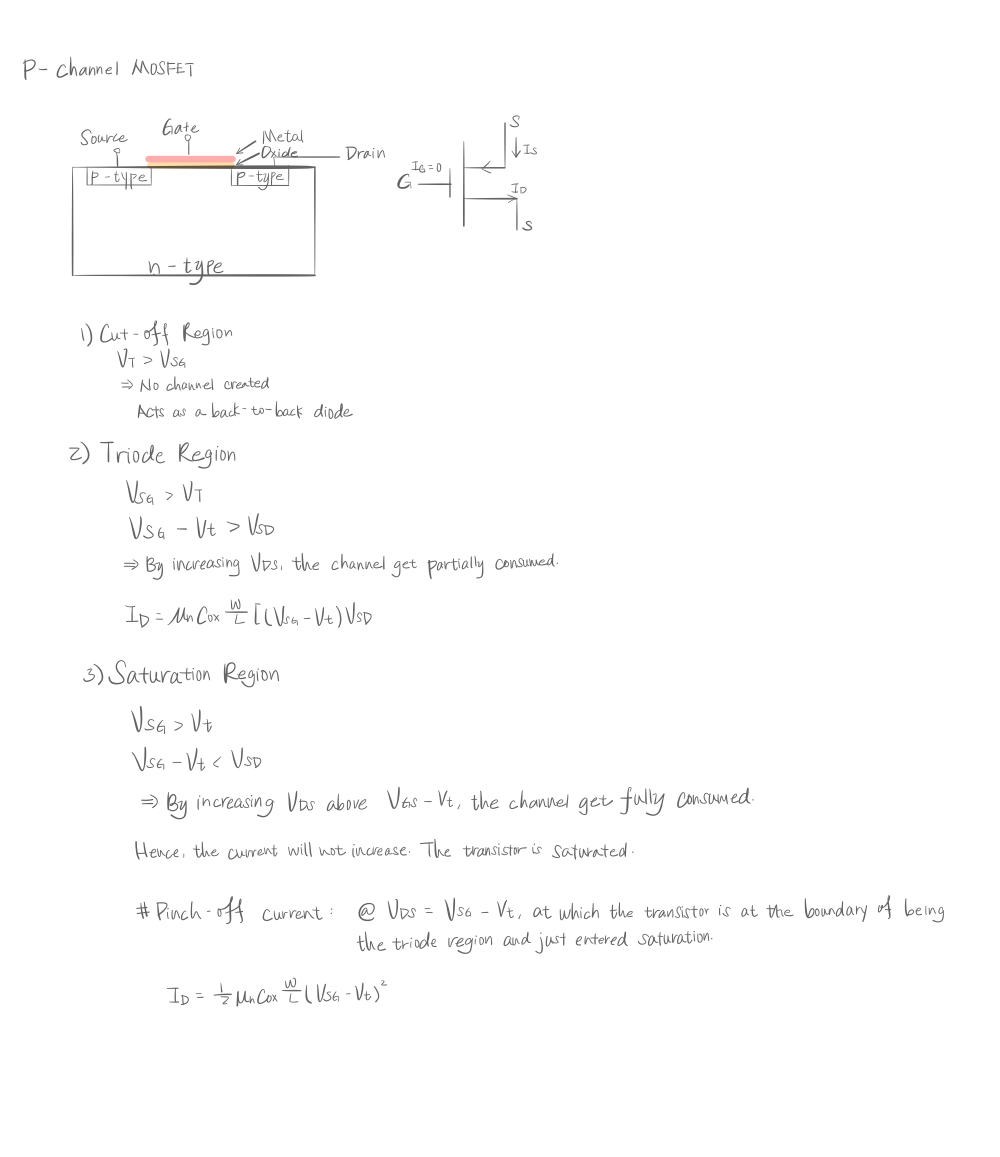 P- channel MOSFET
Source
Gate
Metal
Oxide
Drain
P-type
P-type
n-type
S
IS
IG=0
G
ID
S
1) Cut-off Region
VT > VSG
⇒ No channel created
Acts as a back-to-back diode
2) Triode Region
VSG > VT
VSG - Vt > VSD
⇒ By increasing VDS, the channel get partially consumed.
ID = μnCox W/L [(VSG - Vt)VSD
3) Saturation Region
VSG > Vt
VSG - Vt < VSD
⇒ By increasing VDS above VGS - Vt, the channel get fully consumed.
Hence, the current will not increase. The transistor is saturated.
# Pinch-off current: @ VDS = VSG - Vt, at which the transistor is at the boundary of being
the triode region and just entered saturation.
ID = 1/2 μnCox W/L (VSG - Vt)²